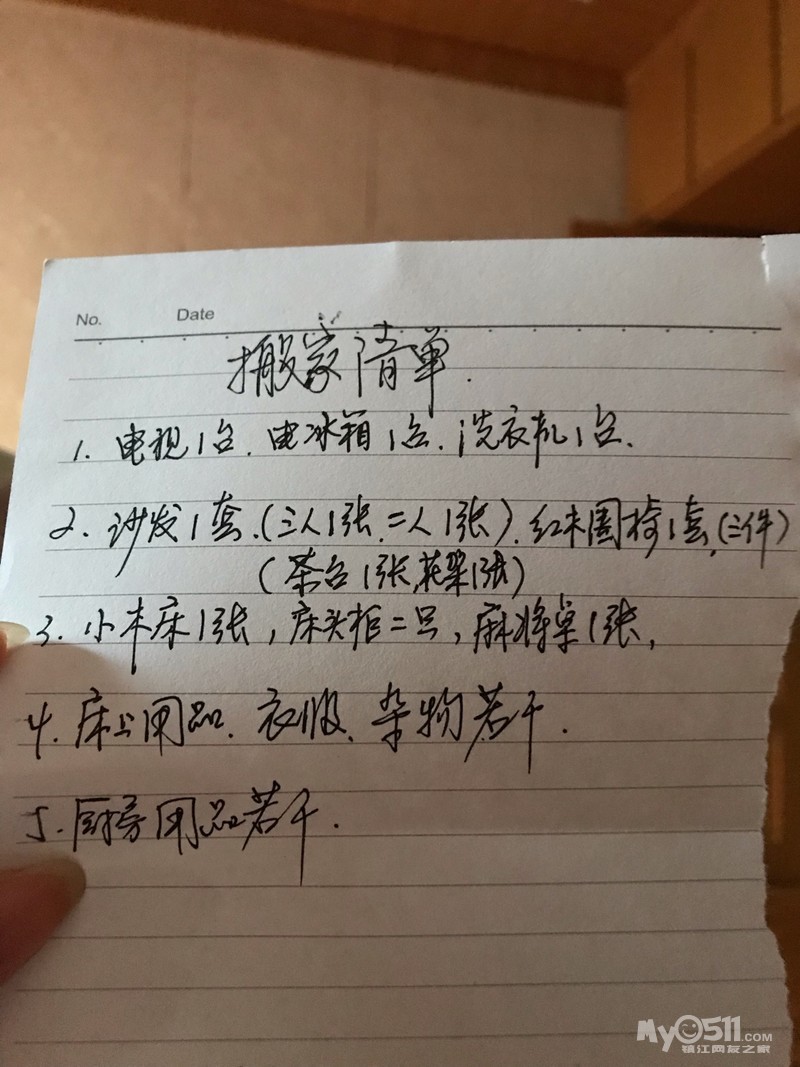 No. Date
搬家清单.
1. 电视1台. 电冰箱1台. 洗衣机1台.
2. 沙发1套.(三人1张.二人1张). 红木圈椅1套.(三件)
(茶台1张,花架1张)
3. 小木床1张, 床头柜二只, 麻将桌1张,
4. 床上用品. 衣服、杂物若干.
5. 厨房用品若干.
My0511.COM
镇江网友之家